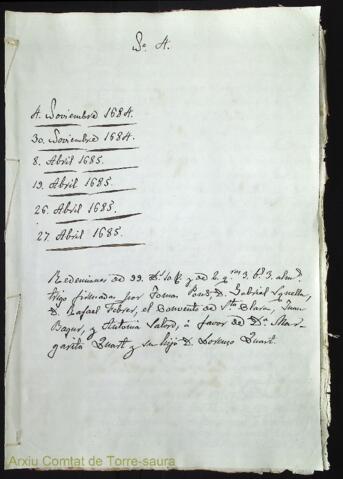 Nº A.
4. Noviembre 1684.
30. Noviembre 1684.
8. Abril 1685.
19. Abril 1685.
26. Abril 1685.
27. Abril 1685.
Redenciones de 99. y de 2. 3. 3.
trigo firmadas por Tomas Pons, D. Gabriel
D. Rafael Febrer, el Convento de Sta. Clara, Juan
Bagur, y Antonia Salord, á favor de Dª Mar-
garita Quart y su hijo D. Lorenzo Quart.
Arxiu Comtat de Torre-saura